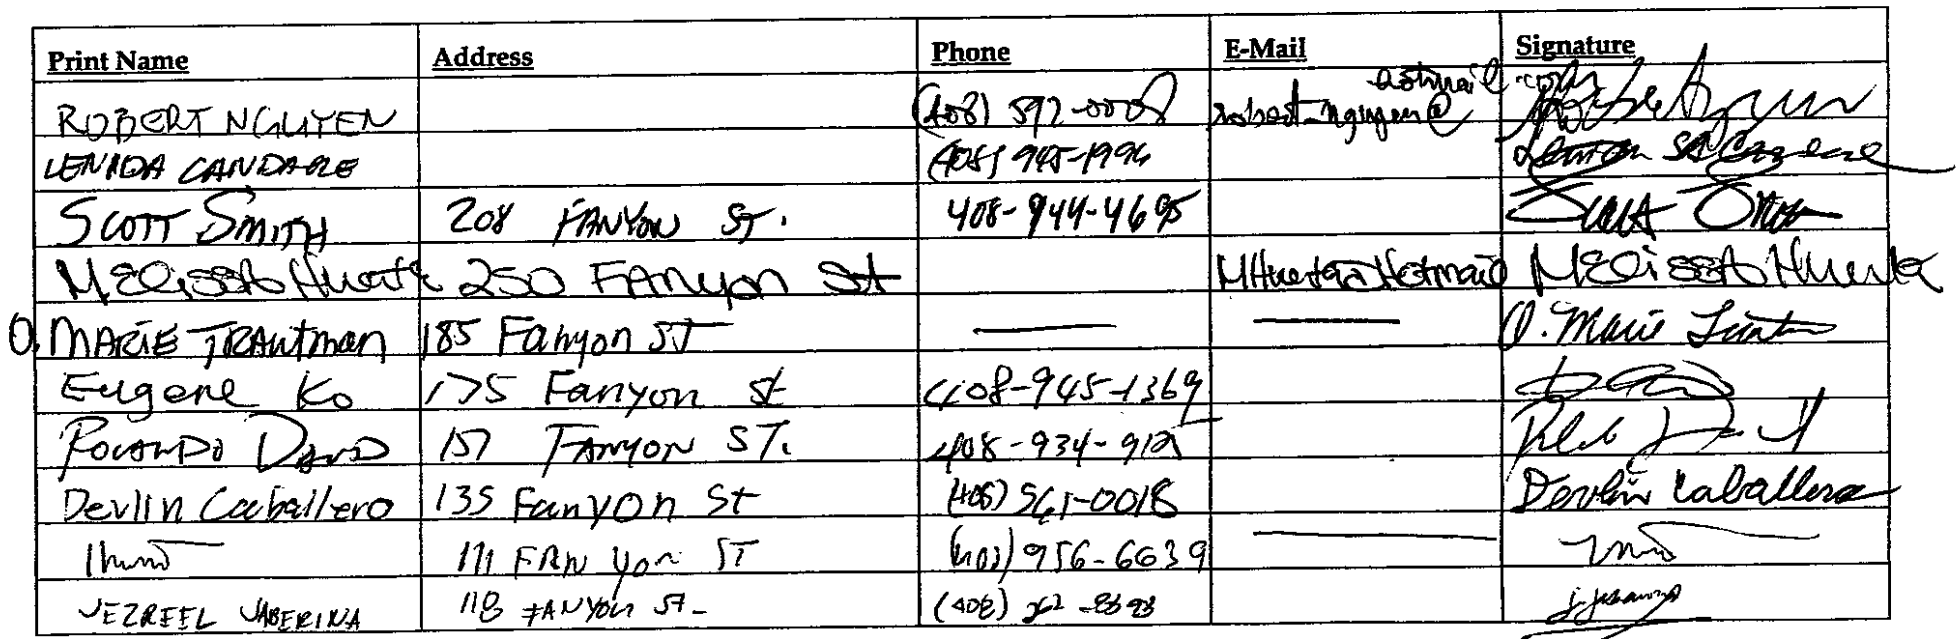 Print Name Address Phone E-Mail Signature
hotmail.com
ROBERT NGUYEN (408) 597-0008 robert_nguyen@
LENIDA CANDARE (408) 945-1994
SCOTT SMITH 208 FANYON ST. 408-944-4695 Scott Smith
Melissa Huerta 250 FANyon St MHuerta@Hotmail Melissa Huerta
O. MARIE TRAutman 185 Fanyon ST — — O. Marie
Eugene Ko 175 Fanyon St 408-945-1369
ROLANDO DAVID 157 FANYON ST. 408-934-9125
Devlin Caballero 135 Fanyon St (408) 561-0018 Devlin Caballero
111 FAN yon ST (408) 956-6639 —
JEZREEL JABERINA 118 FANYON ST. (408)